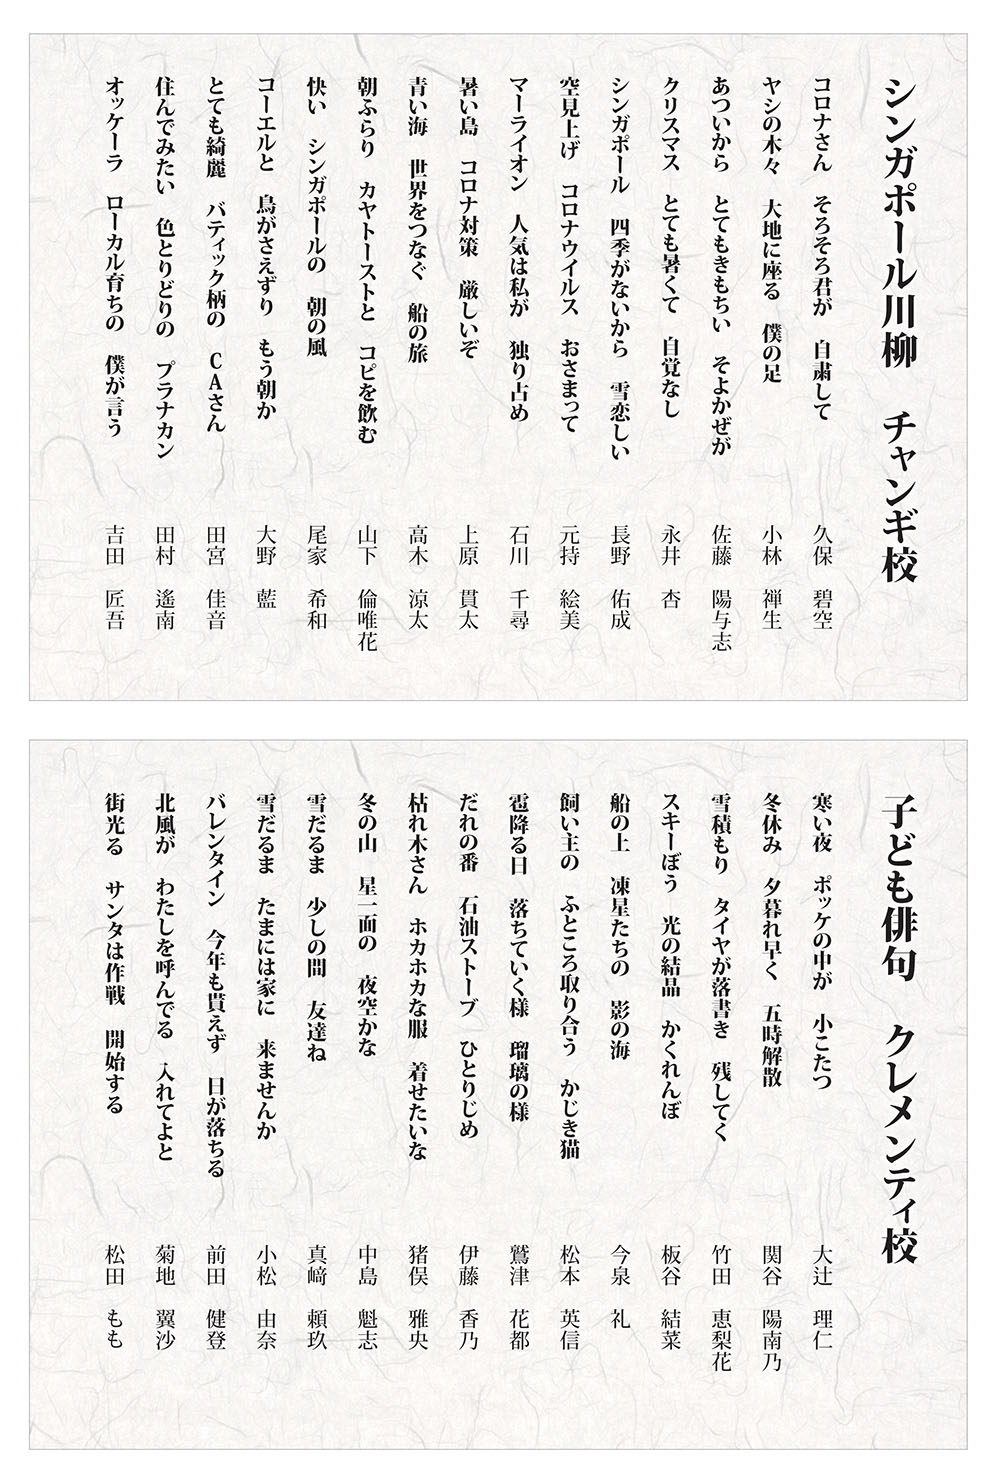 シンガポール川柳　チャンギ校
コロナさん　そろそろ君が　自粛して　久保　碧空
ヤシの木々　大地に座る　僕の足　小林　禅生
あついから　とてもきもちい　そよかぜが　佐藤　陽与志
クリスマス　とても暑くて　自覚なし　永井　杏
シンガポール　四季がないから　雪恋しい　長野　佑成
空見上げ　コロナウイルス　おさまって　元持　絵美
マーライオン　人気は私が　独り占め　石川　千尋
暑い島　コロナ対策　厳しいぞ　上原　貫太
青い海　世界をつなぐ　船の旅　高木　涼太
朝ふらり　カヤトーストと　コピを飲む　山下　倫唯花
快い　シンガポールの　朝の風　尾家　希和
コーエルと　鳥がさえずり　もう朝か　大野　藍
とても綺麗　バティック柄の　CAさん　田宮　佳音
住んでみたい　色とりどりの　プラナカン　田村　遙南
オッケーラ　ローカル育ちの　僕が言う　吉田　匠吾
子ども俳句　クレメンティ校
寒い夜　ポッケの中が　小こたつ　大辻　理仁
冬休み　夕暮れ早く　五時解散　関谷　陽南乃
雪積もり　タイヤが落書き　残してく　竹田　恵梨花
スキーぼう　光の結晶　かくれんぼ　板谷　結菜
船の上　凍星たちの　影の海　今泉　礼
飼い主の　ふところ取り合う　かじき猫　松本　英信
雹降る日　落ちていく様　瑠璃の様　鷲津　花都
だれの番　石油ストーブ　ひとりじめ　伊藤　香乃
枯れ木さん　ホカホカな服　着せたいな　猪俣　雅央
冬の山　星一面の　夜空かな　中島　魁志
雪だるま　少しの間　友達ね　真﨑　頼玖
雪だるま　たまには家に　来ませんか　小松　由奈
バレンタイン　今年も貰えず　日が落ちる　前田　健登
北風が　わたしを呼んでる　入れてよと　菊地　翼沙
街光る　サンタは作戦　開始する　松田　もも